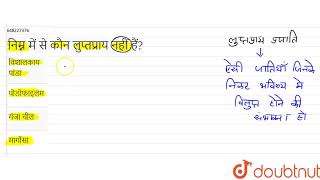 648227376
निम्न में से कौन लुप्तप्राय नहीं है?
विशालकाय
पांडा
पोडोफाइलम
गंजा चील
मार्गोसा
लुप्तप्राय प्रजाति
ऐसी जातियाँ जिनके
निकट भविष्य में
विलुप्त होने की
संभावना हो
doubtnut